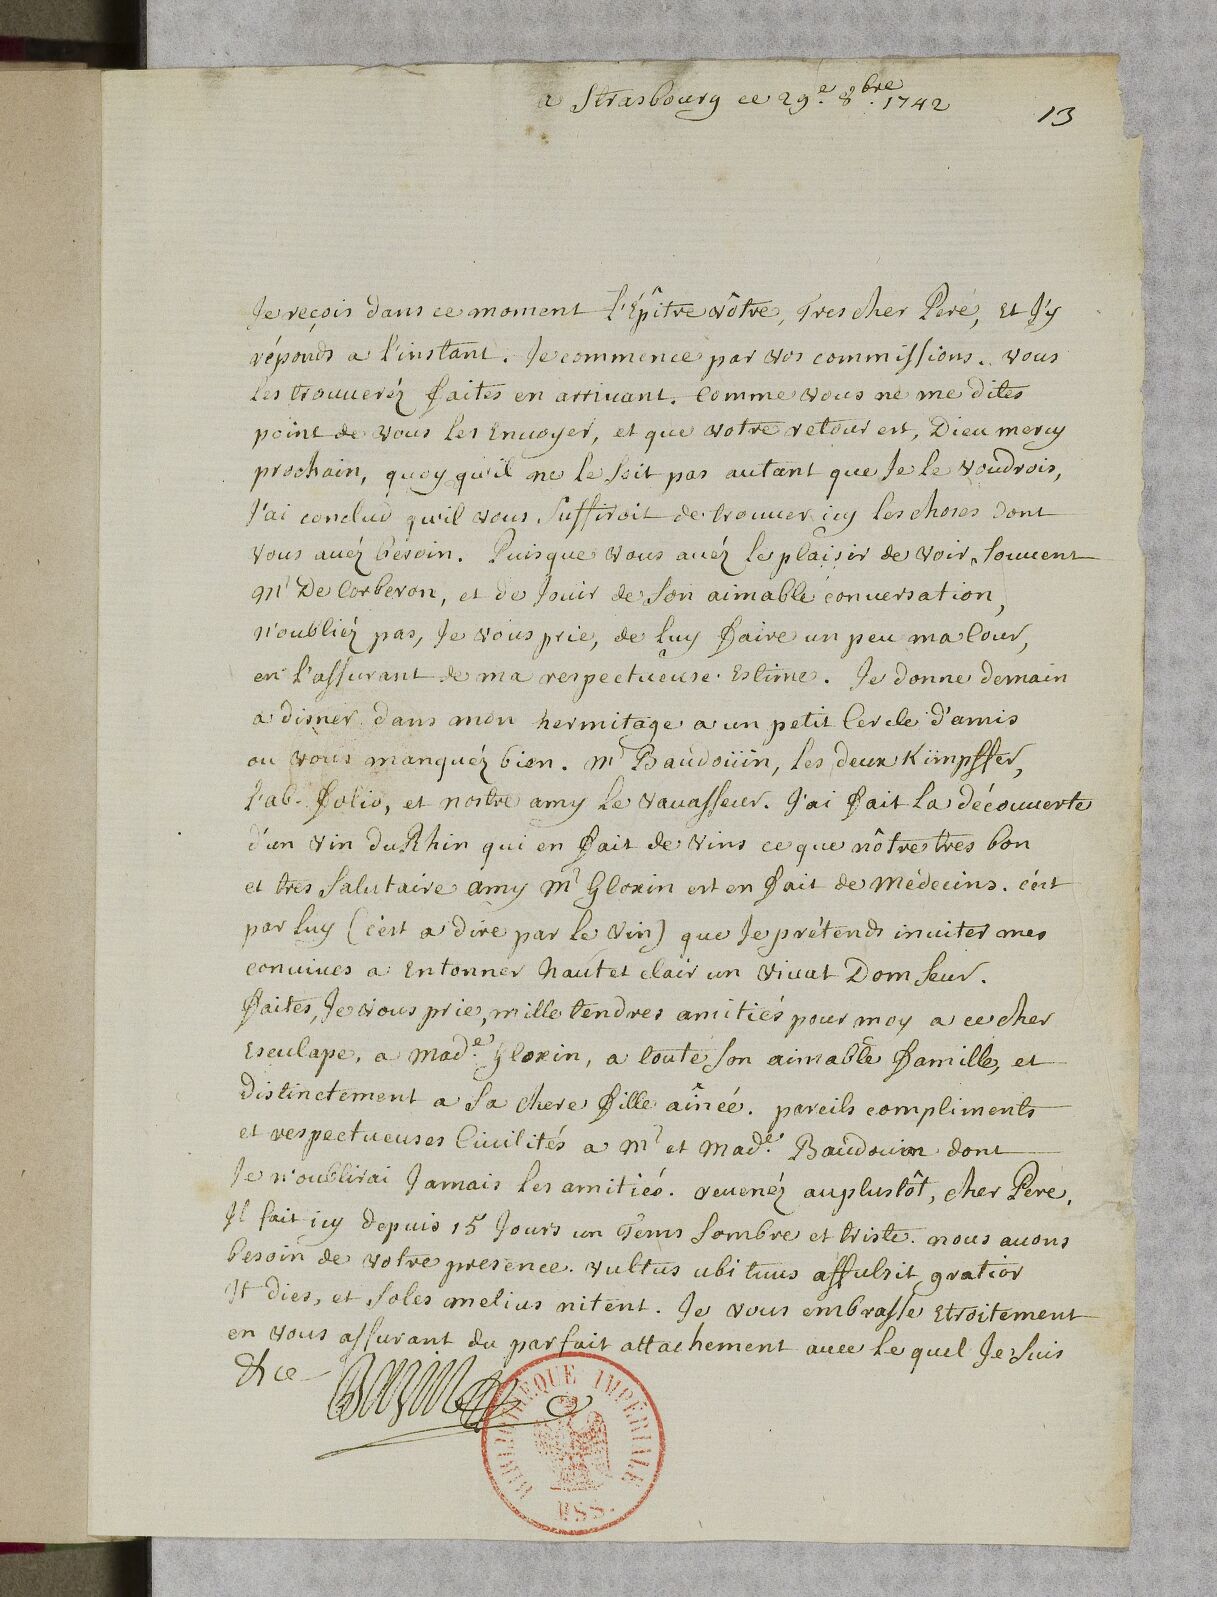 a Strasbourg ce 29.e 8.bre 1742
13
Je reçois dans ce moment l'Epître vôtre, Tres cher Peré, et J'y
réponds a l'instant. Je commence par vos commissions. vous
les trouueréz faites en arriuant. Comme vous ne me dites
point de vous les Enuoyer, et que votre retour est, Dieu mercy
prochain, quoy qu'il ne le soit pas autant que Je le voudrois,
J'ai conclud qu'il vous suffiroit de trouuer icy les choses dont
vous auéz besoin. Puisque vous auéz le plaisir de voir souuent
Mr De Corberon, et de Jouir de son aimable conuersation,
n'oubliéz pas, Je vous prie, de luy faire un peu ma Cour,
en l'assurant de ma respectueuse Estime. Je donne demain
a disner dans mon hermitage a un petit Cercle d'amis
ou vous manquéz bien. Mr Baudoüin, les deux Kümpffer,
l'ab. Folio, et nostre amy le vauasseur. J'ai fait la découuerte
d'un vin du Rhin qui en fait de vins ce que nôtre tres bon
et tres salutaire amy Mr Gloxin est en fait de Médecins. c'est
par luy (c'est a dire par le vin) que Je prétends inuiter mes
conuiues a Entonner haut et clair un viuat Domseur.
faites, Je vous prie, mille tendres amitiés pour moy a ce cher
Esculape, a Mad.e Gloxin, a toute son aimable famille, et
distinctement a sa chere fille aînée. pareils compliments
et respectueuses Ciuilités a Mr et Mad.e Baudouin dont
Je n'oublirai Jamais les amitiés. reuenéz au plustôt, cher Peré.
Il fait icy depuis 15 Jours un Tems sombre et triste. nous auons
besoin de votre presence. vultus ubi tuus affulsit, gratior
It dies, et soles melius nitent. Je vous embrasse Etroitement
en vous assurant du parfait attachement auec le quel Je suis
&ce
BIBLIOTHÈQUE IMPÉRIALE
MSS.